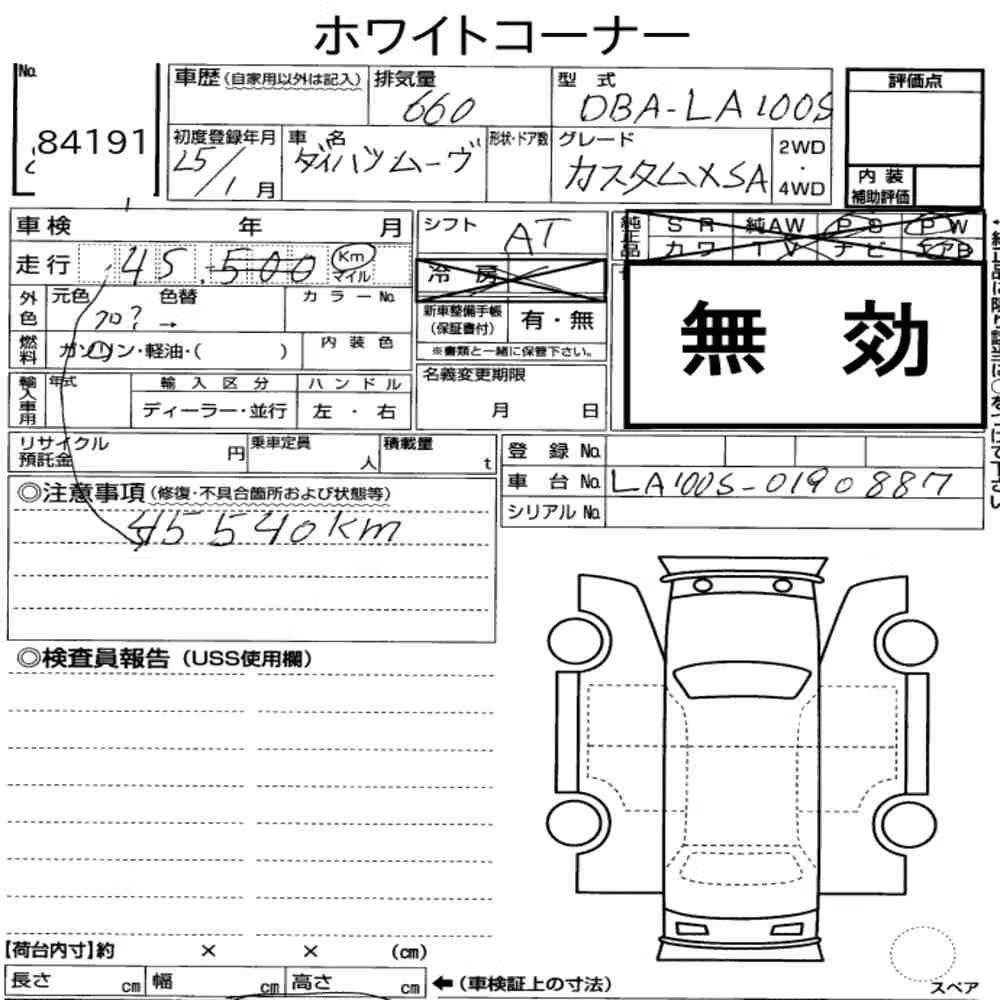 ホワイトコーナー
No. 84191
車歴(自家用以外は記入) 排気量 660 型式 DBA-LA100S 評価点
初度登録年月 25/1月 車名 ダイハツムーヴ 形状・ドア数 グレード カスタムXSA 2WD・4WD
内装補助評価
車検 年 月 シフト AT 純正品 SR 純AW PS PW
走行 45,500 Km マイル 冷房 カワ TV ナビ エアB
外色 元色 クロ? 色替 → カラーNo. 新車整備手帳(保証書付) 有・無
無効
燃料 ガソリン・軽油・( ) 内装色 ※書類と一緒に保管下さい。
輸入車用 年式 輸入区分 ハンドル 名義変更期限
ディーラー・並行 左・右 月 日
リサイクル預託金 円 乗車定員 人 積載量 t 登録No.
車台No. LA100S-0190887
シリアルNo.
◎注意事項(修復・不具合箇所および状態等)
45540km
◎検査員報告(USS使用欄)
【荷台内寸】約 × × (cm)
長さ cm 幅 cm 高さ cm ←(車検証上の寸法)
スペア